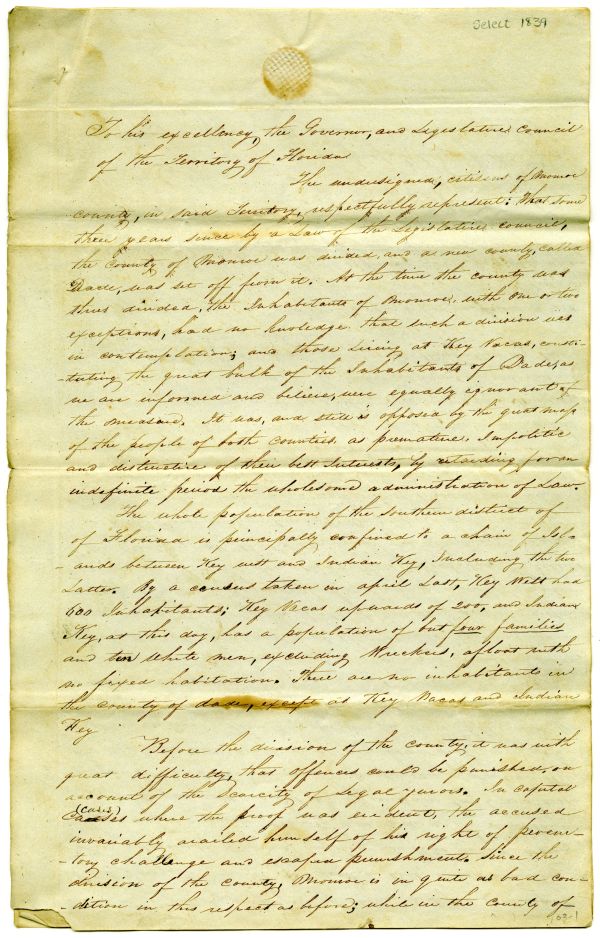 Select 1839
To his excellency, the Governor, and Legislative Council
of the Territory of Florida
The undersigned, citizens of Monroe
county, in said Territory, respectfully represent: That some
three years since by a Law of the Legislative council,
the County of Monroe was divided, and a new county, called
Dade, was set off from it. At the time the county was
thus divided, the Inhabitants of Monroe, with one or two
exceptions, had no knowledge that such a division was
in contemplation; and those living at Key Vacas, consti-
-tuting the great bulk of the Inhabitants of Dade, as
we are informed and believe, were equally ignorant of
the measure. It was, and still is opposed by the great mass
of the people of both Counties as premature, Impolitic
and distructive of their best Interests, by retarding for an
indefinite period the wholesome administration of Law.
The whole population of the southern district of
of Florida is principally confined to a chain of Isl-
-ands between Key West and Indian Key, Including the two
Latter. By a census taken in april Last, Key West had
600 Inhabitants; Key Vacas upwards of 200, and Indian
Key, at this day, has a population of but four families
and ten White men, excluding Wreckers, afloat with
no fixed habitation. There are no inhabitants in
the county of dade, except at Key Vacas and Indian
Key
Before the division of the county, it was with
great difficulty, that offences could be punished, on
account of the scarcity of Legal jurors. In capital
(cases)
where the proof was evident, the accused
invariably availed himself of his right of peremp-
-tory challenge and escaped punishment. Since the
division of the county, Monroe is in quite as bad con-
-dition in this respect as before; while in the County of